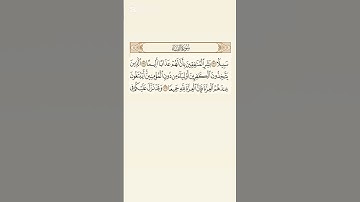 سُورَةُ النِّسَاءِ
سَبِيلًا ۝ بَشِّرِ ٱلْمُنَٰفِقِينَ بِأَنَّ لَهُمْ عَذَابًا أَلِيمًا ۝ ٱلَّذِينَ
يَتَّخِذُونَ ٱلْكَٰفِرِينَ أَوْلِيَآءَ مِن دُونِ ٱلْمُؤْمِنِينَ ۚ أَيَبْتَغُونَ
عِندَهُمُ ٱلْعِزَّةَ فَإِنَّ ٱلْعِزَّةَ لِلَّهِ جَمِيعًا ۝ وَقَدْ نَزَّلَ عَلَيْكُمْ فِى